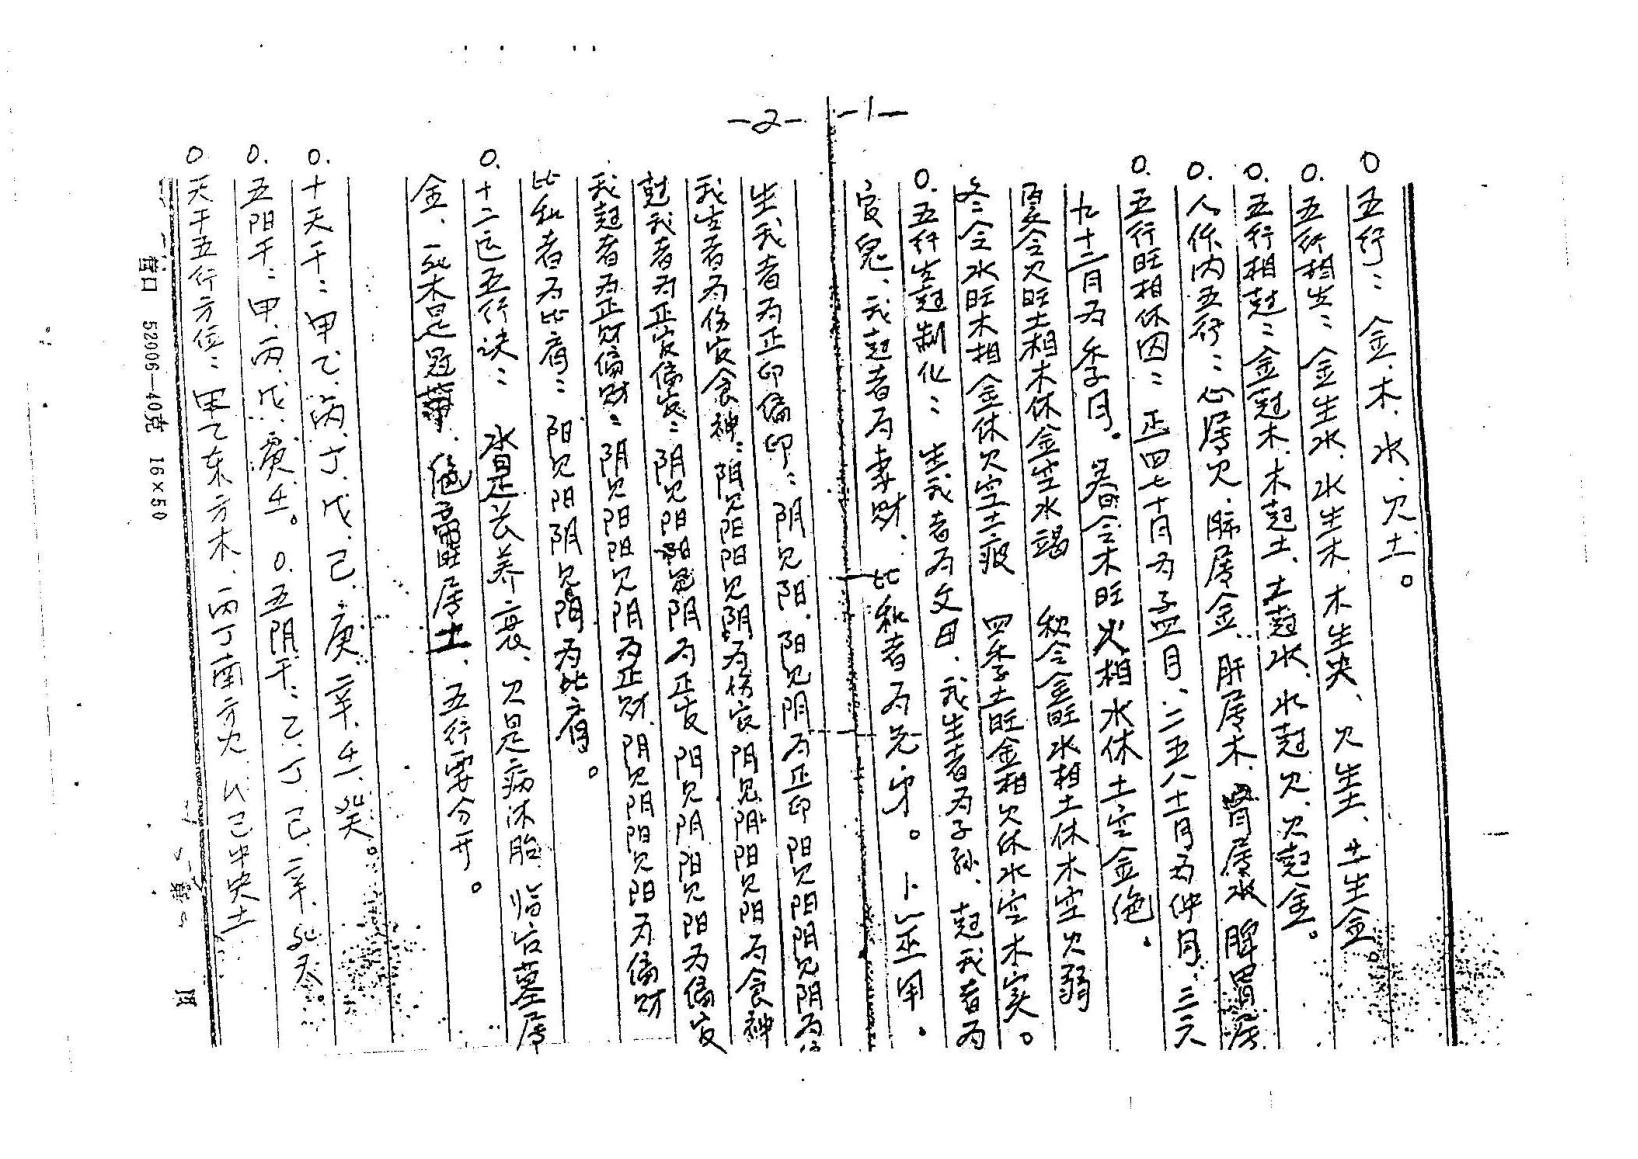 -1-
○五行：金、木、水、火、土。
○.五行相生：金生水、水生木、木生火、火生土、土生金。
○.五行相尅：金尅木、木尅土、土尅水、水尅火、火尅金。
○.人体内五行：心属火、肺属金、肝属木、肾属水 脾胃属
○.五行旺相休囚：正四七十月为孟月、二五八十一月为仲月、三六
九十二月为季月。春令木旺火相水休土空金绝.
夏令火旺土相木休金空水竭 秋令金旺水相土休木空火弱
冬令水旺木相金休火空土寂 四季土旺金相火休水空木实。
○.五行生尅制化：生我者为父母、我生者为子孙、尅我者为
官鬼、我尅者为妻财、比和者为兄弟。卜巫用.
-2-
生我者为正印偏印：阴见阳、阳见阴为正印 阳见阳阴见阴为
我生者为伤官食神：阳见阳阳见阴为伤官阴见阴阳见阳为食神
尅我者为正官偏官：阴见阳阳见阴为正官 阳见阴阳见阳为偏官
我尅者为正财偏财：阴见阳阳见阴为正财、阴见阴阳见阳为偏财
比和者为比肩：阳见阳阴见阴为比肩。
○.十二运五行诀：水是长养衰、火是病沐胎、临官墓属
金、木是冠带、绝帝旺属土、五行要分开。
○.十天干：甲乙、丙、丁、戊、己、庚、辛、壬、癸。
○.五阳干：甲、丙、戊、庚、壬。○.五阴干：乙、丁、己、辛、癸。
○天干五行方位：甲乙东方木、丙丁南方火、戊己中央土
营口 52006—40克 16×50
第 页